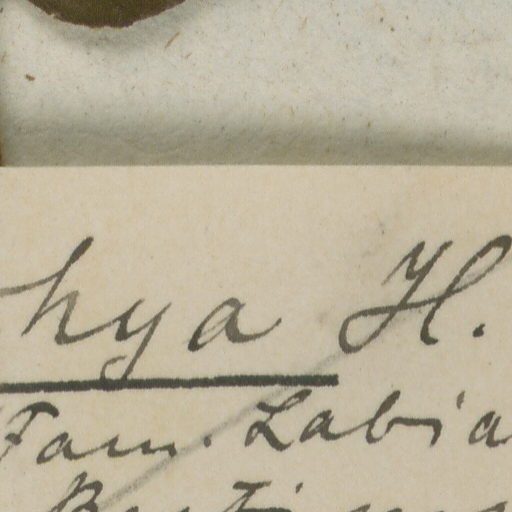 hya H.
Fam. Labia